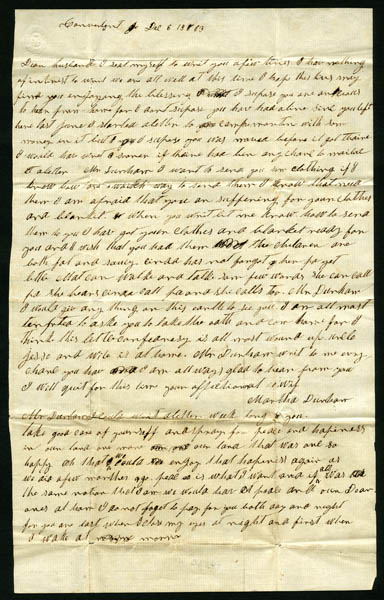 Convenient Dec 6 1863
Dear husband I seat myself to writ you a few lines I have nothing
of interest to writ we are all well at this time I hope this lines may
find you enjoying the blessing I supose you are anctious
to hear from home for I dont supose you have had a line sinc you left
here last june I started a letter to camp morton with som
money in it but I supose you was moved before it got thaire
I would have wrot sooner if thaire had ben any chanc to mailed
a letter Mr Durham I want to send you som clothing if I
know how or which way to send them I know that need
them I am afraid that you ar suffering for your clothes
and blanket when you writ let me know how to send
them to you I hav got your clothes and blanket ready for
you and I wish that you had them the children are
both fat and saucy cinda has not forgot her pa yet
little Mat can walke and talk som few words she can call
pa she hears cinda call pa and she calls to Mr Durham
I would giv any thing on this earth to see you I am all most
tempted to aske you to take the oath and com home for I
think this little confedracy is all most wound up uncle
Jesse and wife is at home Mr Durham writ to me evry
chanc you have I am all ways glad to hear from you
I will quit for this time your affectionat wife
Martha Durham
Mr Durham I could writ a letter week long to you
take good care of yourself and pray for peac and hapiness
in our land one more our land that was onc so
happy oh that I could enjoy that hapiness again as
we did a few monthes ago peac is what I want and if all was
the same notion that I am we would hav it peac and our dear
ones at hom I do not foget to pray for you both day and night
for you are last when I close my eyes at night and first when
I wake at morni